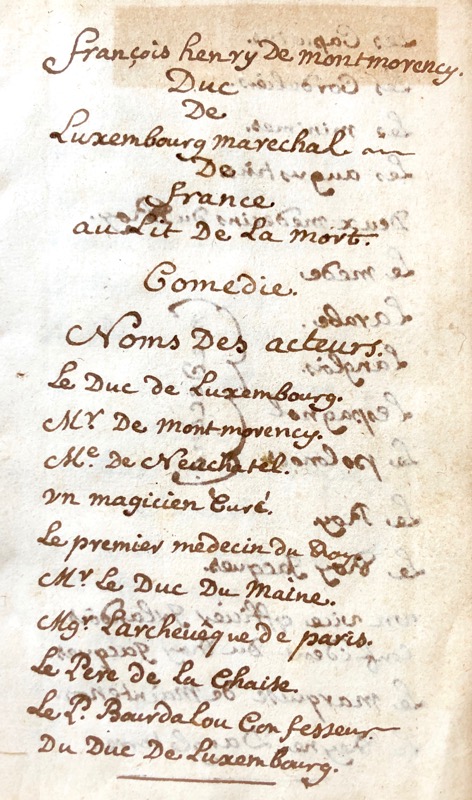 françois henry De montmorency.
Duc
De
Luxembourg marechal
De
france
au Lit De La mort.
Comedie.
Noms Des acteurs.
Le Duc de Luxembourg.
Mr. De montmorency.
Me. de Neuchatel.
vn magicien Curé.
Le premier medecin du Roy.
Mr Le Duc Du Maine.
Mgr Larcheuêque de paris.
Le Pere de la Chaise.
Le P. Bourdalou Confesseur
Du Duc De Luxembourg.